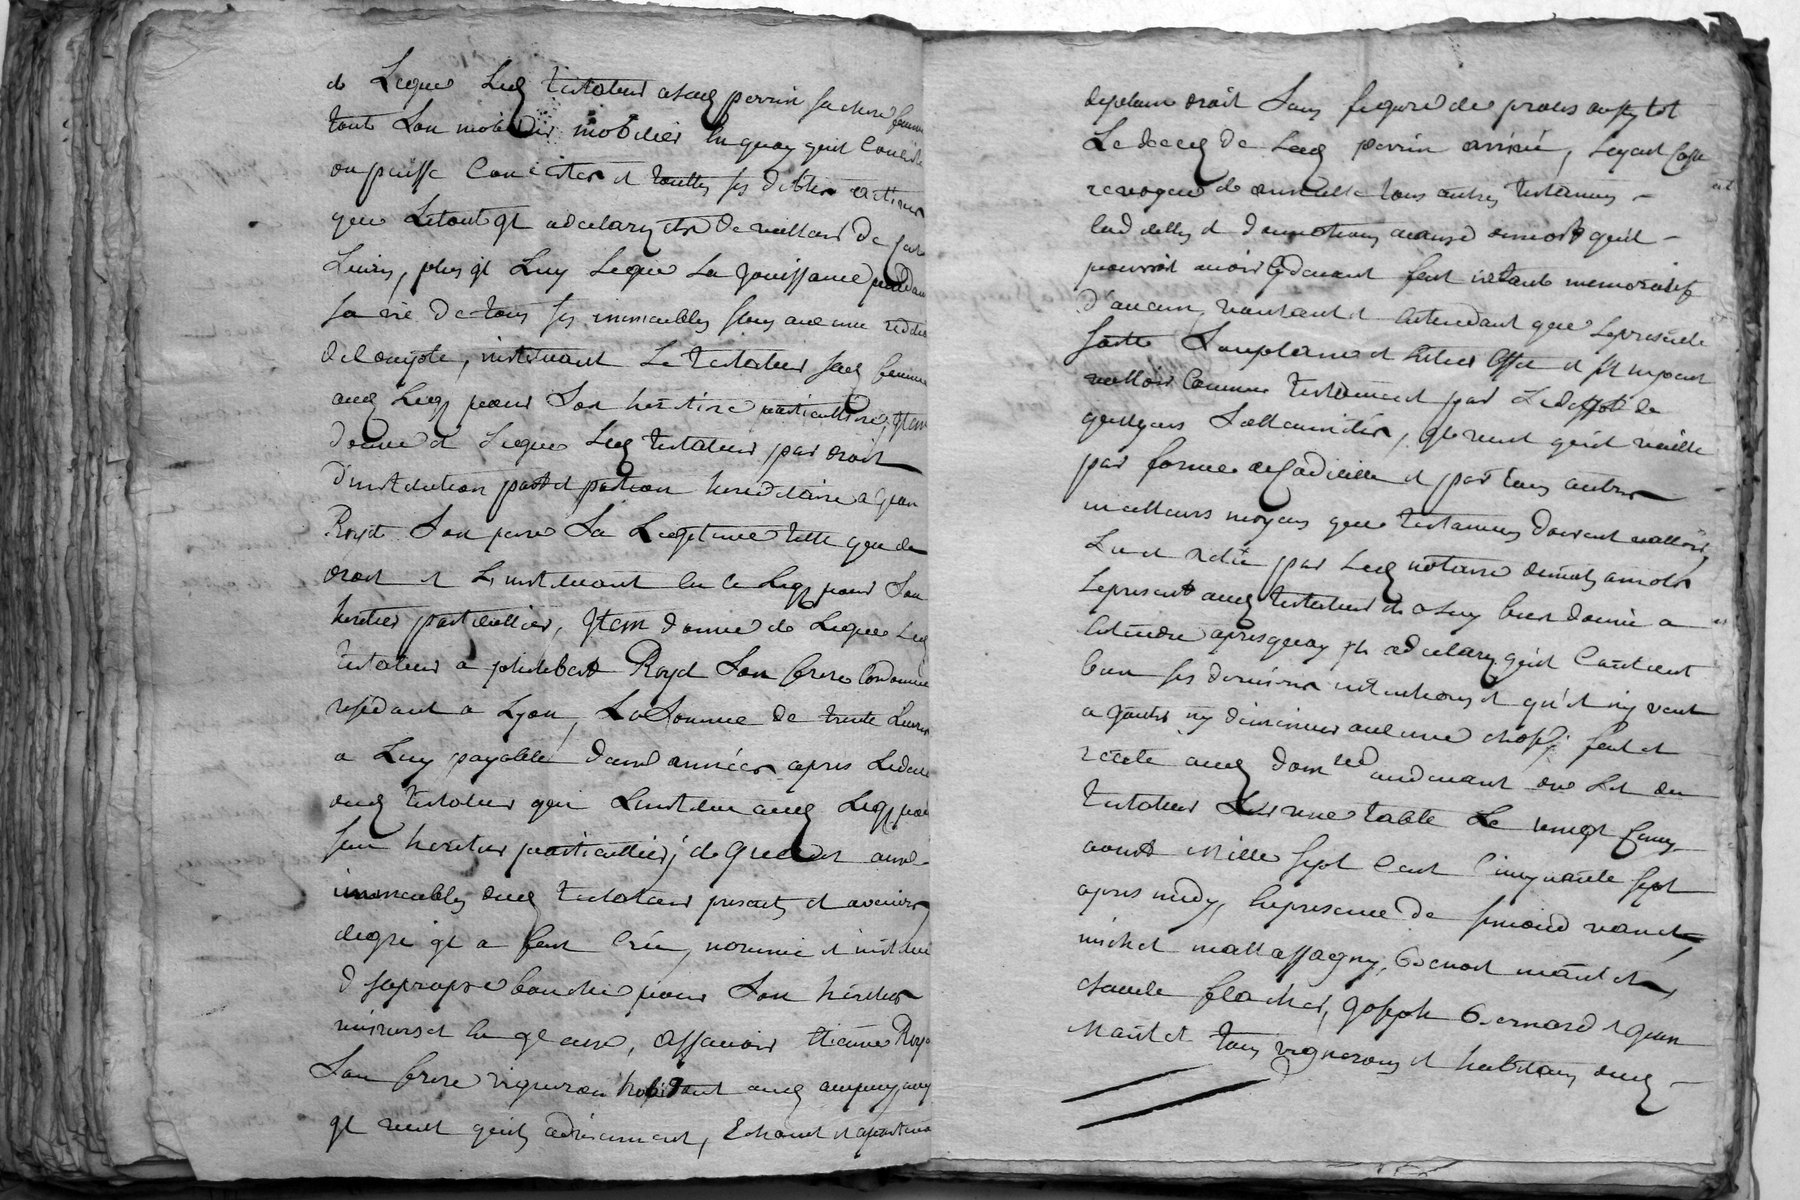 & Legue Led testateur a lad perrin sa chere femme
tout son mobilier mobilier en quoy quil consiste
ou puisse consister et touttes ses dettes actives
que le tout il a declaré estre de valleur de
Livres, plus il Luy Legue La Jouissance pendant
sa vie de tous ses immeubles sans aucune
de compte, instituant Le testateur sad femme
aud Legs pour son heritiere particulliere, Item
donne et Legue Led testateur par droit
d'institution part et portion hereditaire a
Royet son pere La Legitime telle que de
droit et L instituant en ce Legs pour son
heritier particullier, Item donne & Legue Led
testateur a philibert Royet son frere
residant a Lyon, La somme de trente Livres
a Luy payable d'une année apres Le deces
dud testateur qui L institue aud Legs pour
son heritier particullier, &
immeubles dud testateur presents et avenirs
il a fait créé, nommé et institué
de sa propre bouche pour son heritier
universel assavoir Etienne Roye
son frere vigneron habitant aud
il veut
de plain droit sans figure de proces aussy tot
Le deces de Lad perrin arrivé,
revoque & annulle tous autres testaments
codicilles et donnations a cause de mort qu'il
pourroit avoir cy devant fait netant memoratif
d'aucun, voulant et entendant que Le present
sorte son plain et entier effet et sil ne peut
valloir comme testament par Le deffaut de
quelques sollemnités, il veut quil vaille
par forme de codicille et par tous autres
meilleurs moyens que testaments doivent valloir,
Lu et relu par Led notaire de mots a mots
Le present aud testateur & a Luy bien donné a
entendre apres quoy il a declaré quil contient
bien ses dernieres intentions et qu'il ny veut
ajouter ny diminuer aucune chose; fait et
recité aud domicile au devant du Lit du
testateur sur une table Le vingt cinq
aoust mille sept cent cinquante sept
apres midy, En presence de
michel mallassagny, Benoit
claude flacher, Joseph Bernard &
tous vignerons et habitans dud